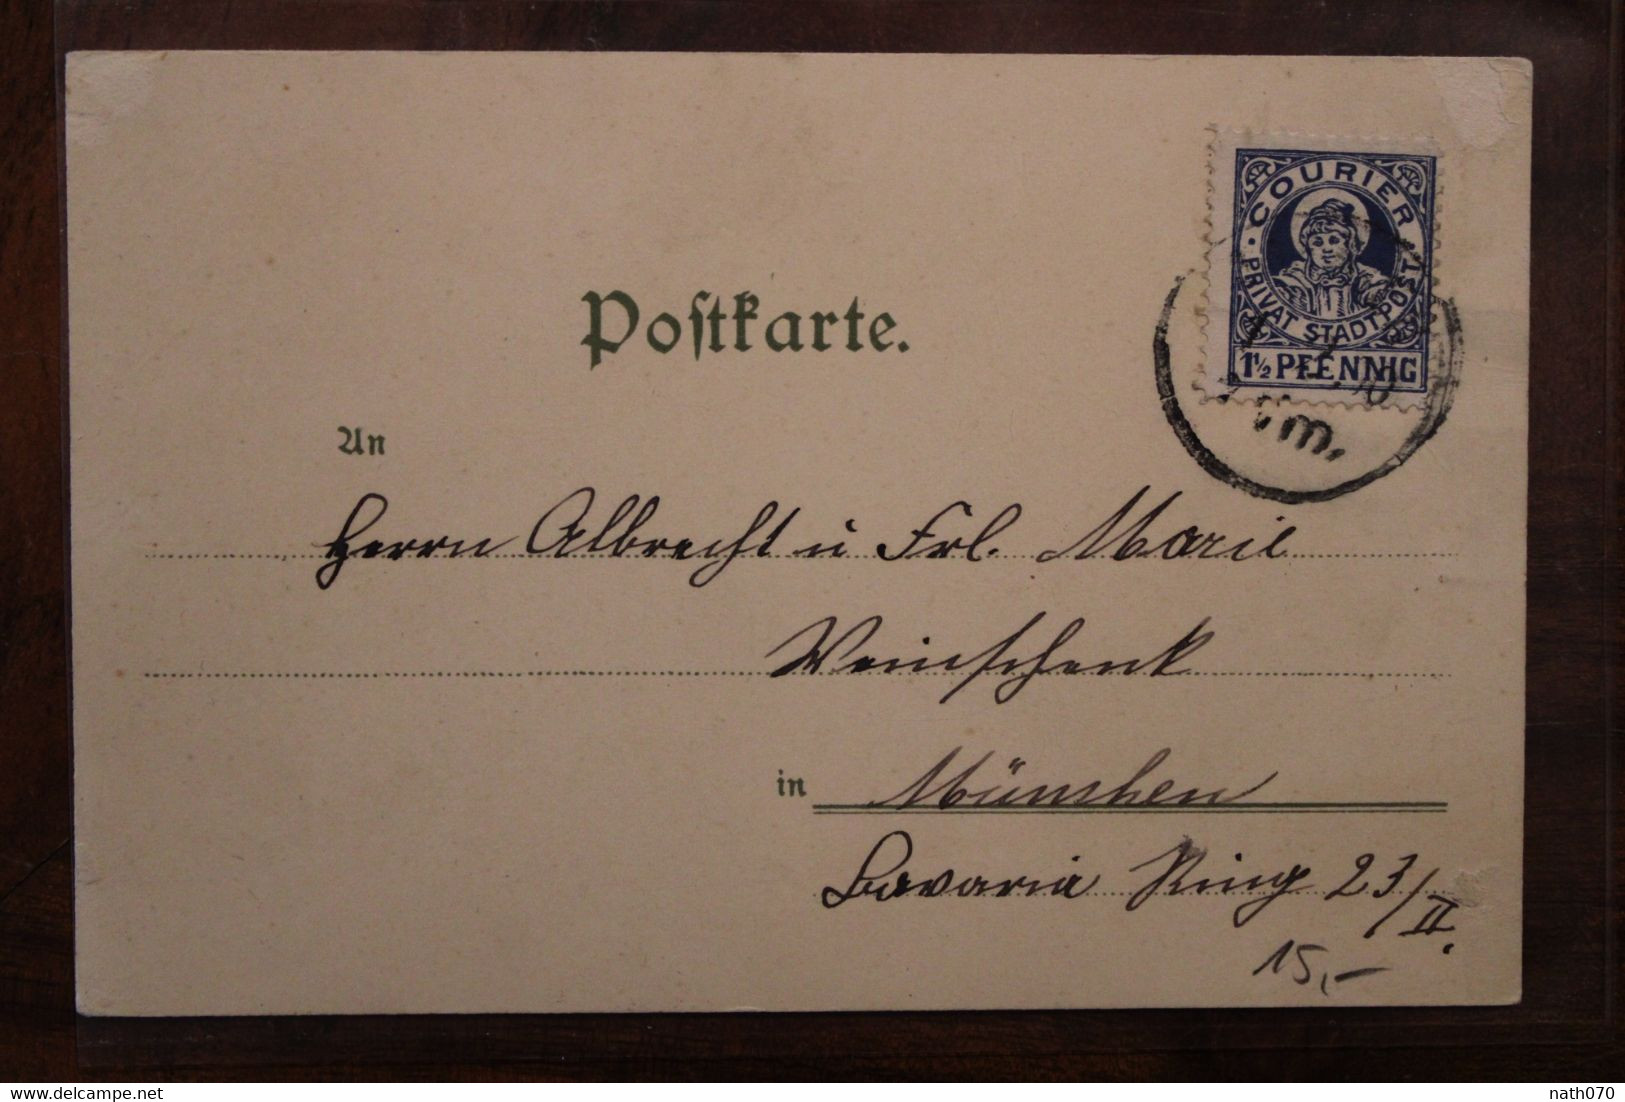 COURIER
PRIVAT STADTPOST
1½ PFENNIG
Vm.
Postkarte.
An
Herrn Albrecht u Frl. Marie
Weinschenk
in München
Bavaria Ring 23/II.
15,-
delcampe.net
nath070